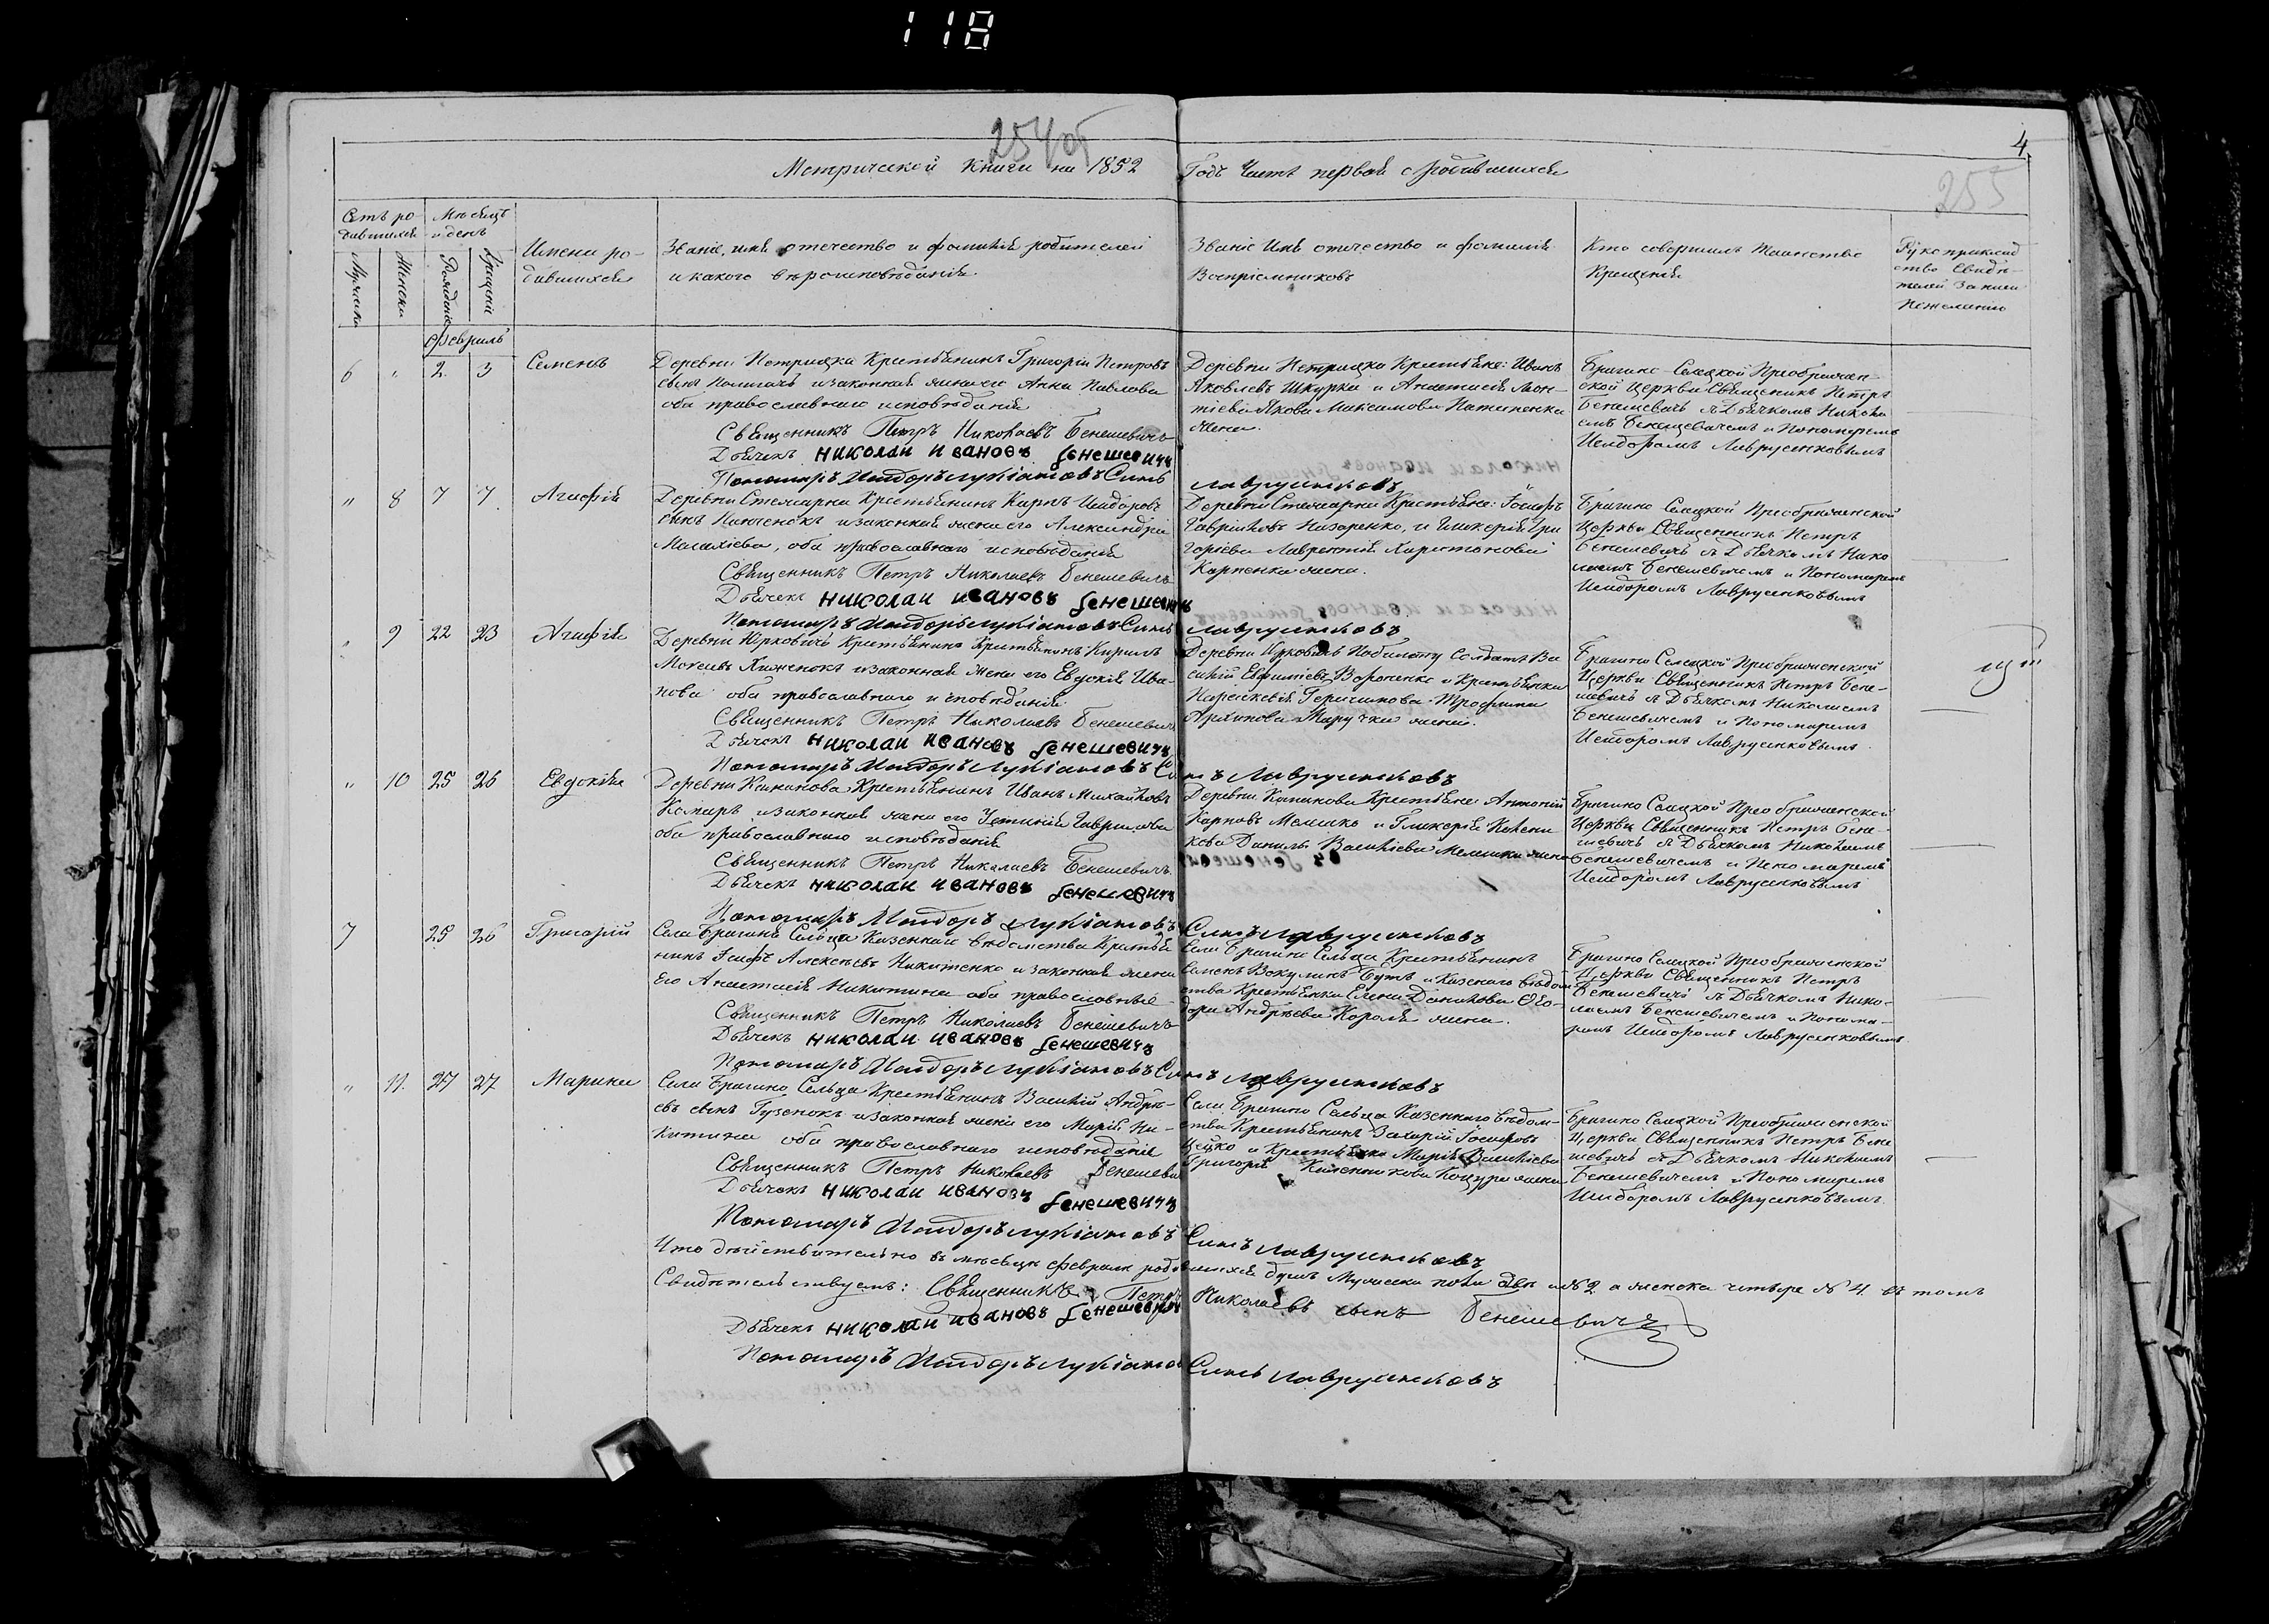 118
254 об
4
255
Метрической Книги на 1852
Годъ Часть первая о родившихся
Счетъ ро-
дившихся
Мѣсяцъ
и день
Мужеска
Женска
Рожденія
Крещенія
Имена ро-
дившихся
Званіе, имя отечество и фамилія родителей
и какого вѣроисповѣданія
Званіе Имя отечество и фамилія
Воспріемниковъ
Кто совершилъ Таинство
Крещенія
Рукоприклад
ство Свидѣ-
телей записи
по желанію
Февраль
6 2 3 Семенъ
Деревни Петрицка Крестьянинъ Григорій Петровъ
сынъ и законная жена его Анна Павлова
оба православнаго исповѣданія
Священникъ Петръ Николаевъ Бенешевичъ
Дьячекъ николаи ивановъ бенешевичъ
Пономарь Исидоръ лукіановъ Сынъ лаврушковъ
Деревни Петрицка Крестьяне: Иванъ
Яковлевъ Шкурка и Анастасія Леон-
тіева Якова Максимова
жена.
Брагино-Селецкой Преображен-
ской Церкви Священникъ Петръ
Бенешевичъ съ Дьячкомъ Никола
емъ Бенешевичемъ и Пономаремъ
Исидоромъ Лаврусенковымъ
" 8 7 7 Агафія
Деревни Крестьянинъ Карпъ Исидоровъ
сынъ и законная жена его Александра
Малахіева, оба православнаго исповѣданія
Священникъ Петръ Николаевъ Бенешевичъ
Дьячекъ николаи ивановъ бенешевичъ
Пономарь Исидоръ лукіановъ Сынъ лаврушковъ
Деревни Крестьяне: Іосифъ
Гавріиловъ Назаренко, и Гликерія Гри
горіева Лаврентія Харитонова
Карпенка жена.
Брагино Селецкой Преображенской
Церкви Священникъ Петръ
Бенешевичъ съ Дьячкомъ Нико
лаемъ Бенешевичемъ и Пономаремъ
Исидоромъ Лаврусенковымъ
" 9 22 23 Агафія
Деревни Юрковичъ Крестьянина Крестьянинъ Кирилъ
Моисеевъ и законная жена его Евдокія Ива-
нова оба православнаго исповѣданія
Священникъ Петръ Николаевъ Бенешевичъ
Дьячекъ николаи ивановъ бенешевичъ
Пономарь Исидоръ лукіановъ Сынъ Лаврушковъ
Деревни Юрковичъ Солдатъ Ва
силій Евфиміевъ Вороненко и Крестьянка
Параскевія Герасимова Трофима
Архипова жена.
Брагино Селецкой Преображенской
Церкви Священникъ Петръ Бене-
шевичъ съ Дьячкомъ Николаемъ
Бенешевичемъ и Пономаремъ
Исидоромъ Лаврусенковымъ
" 10 25 26 Евдокія
Деревни Крестьянинъ Иванъ Михайловъ
Комаръ и законная жена его Устинія Гаврилова
оба православнаго исповѣданія
Священникъ Петръ Николаевъ Бенешевичъ.
Дьячекъ николаи ивановъ бенешевичъ
Пономарь Исидоръ лукіановъ Сынъ лаврушковъ
Деревни Крестьяне Антоній
Карповъ Мелешко и Гликерія
Даніила Василіева Мелешки жена
Брагино Селецкой Преображенской
Церкви Священникъ Петръ Бене-
шевичъ съ Дьячкомъ Николаемъ
Бенешевичемъ и Пономаремъ
Исидоромъ Лаврусенковымъ
7 25 26 Григорій
Села Брагина Сельца Казеннаго вѣдомства Крестья
нинъ Іосифъ Алексѣевъ Никитенко и законная жена
Его Анастасія Никитина оба православные
Священникъ Петръ Николаевъ Бенешевичъ
Дьячекъ николаи ивановъ бенешевичъ
Пономарь Исидоръ лукіановъ Сынъ лаврушковъ
Села Брагина Сельца Крестьянинъ
и Казеннаго вѣдом
ства Крестьянка Елена Даніилова Ѳео-
дора Андреева Короля жена.
Брагино Селецкой Преображенской
Церкви Священникъ Петръ
Бенешевичъ съ Дьячкомъ Нико-
лаемъ Бенешевичемъ и Понома-
ремъ Исидоромъ Лаврусенковымъ
" 11. 27 27 Марина
Села Брагина Сельца Крестьянинъ Василій Андре-
евъ сынъ Гузенокъ и законная жена его Марія Ни-
китина оба православнаго исповѣданія
Священникъ Петръ Николаевъ Бенешевичъ
Дьячекъ николаи ивановъ бенешевичъ
Пономарь Исидоръ лукіановъ Сынъ лаврушковъ
Села Брагина Сельца Казеннаго вѣдом-
ства Крестьянинъ Захарій Іосифовъ
и Крестьянка Марія Василіева
Григорія Коцура жена
Брагино Селецкой Преображенской
Церкви Священникъ Петръ Бене
шевичъ съ Дьячкомъ Николаемъ
Бенешевичемъ и Пономаремъ
Исидоромъ Лаврусенковымъ.
Что дѣйствительно въ мѣсяцѣ февралѣ родившихся душъ Мужеска пола двѣ №2 а женска четыре №4 въ томъ
Свидѣтельствуемъ: Священникъ Петръ Николаевъ сынъ Бенешевичъ
Дьячекъ николаи ивановъ бенешевичъ
Пономарь Исидоръ лукіановъ Сынъ лаврушковъ